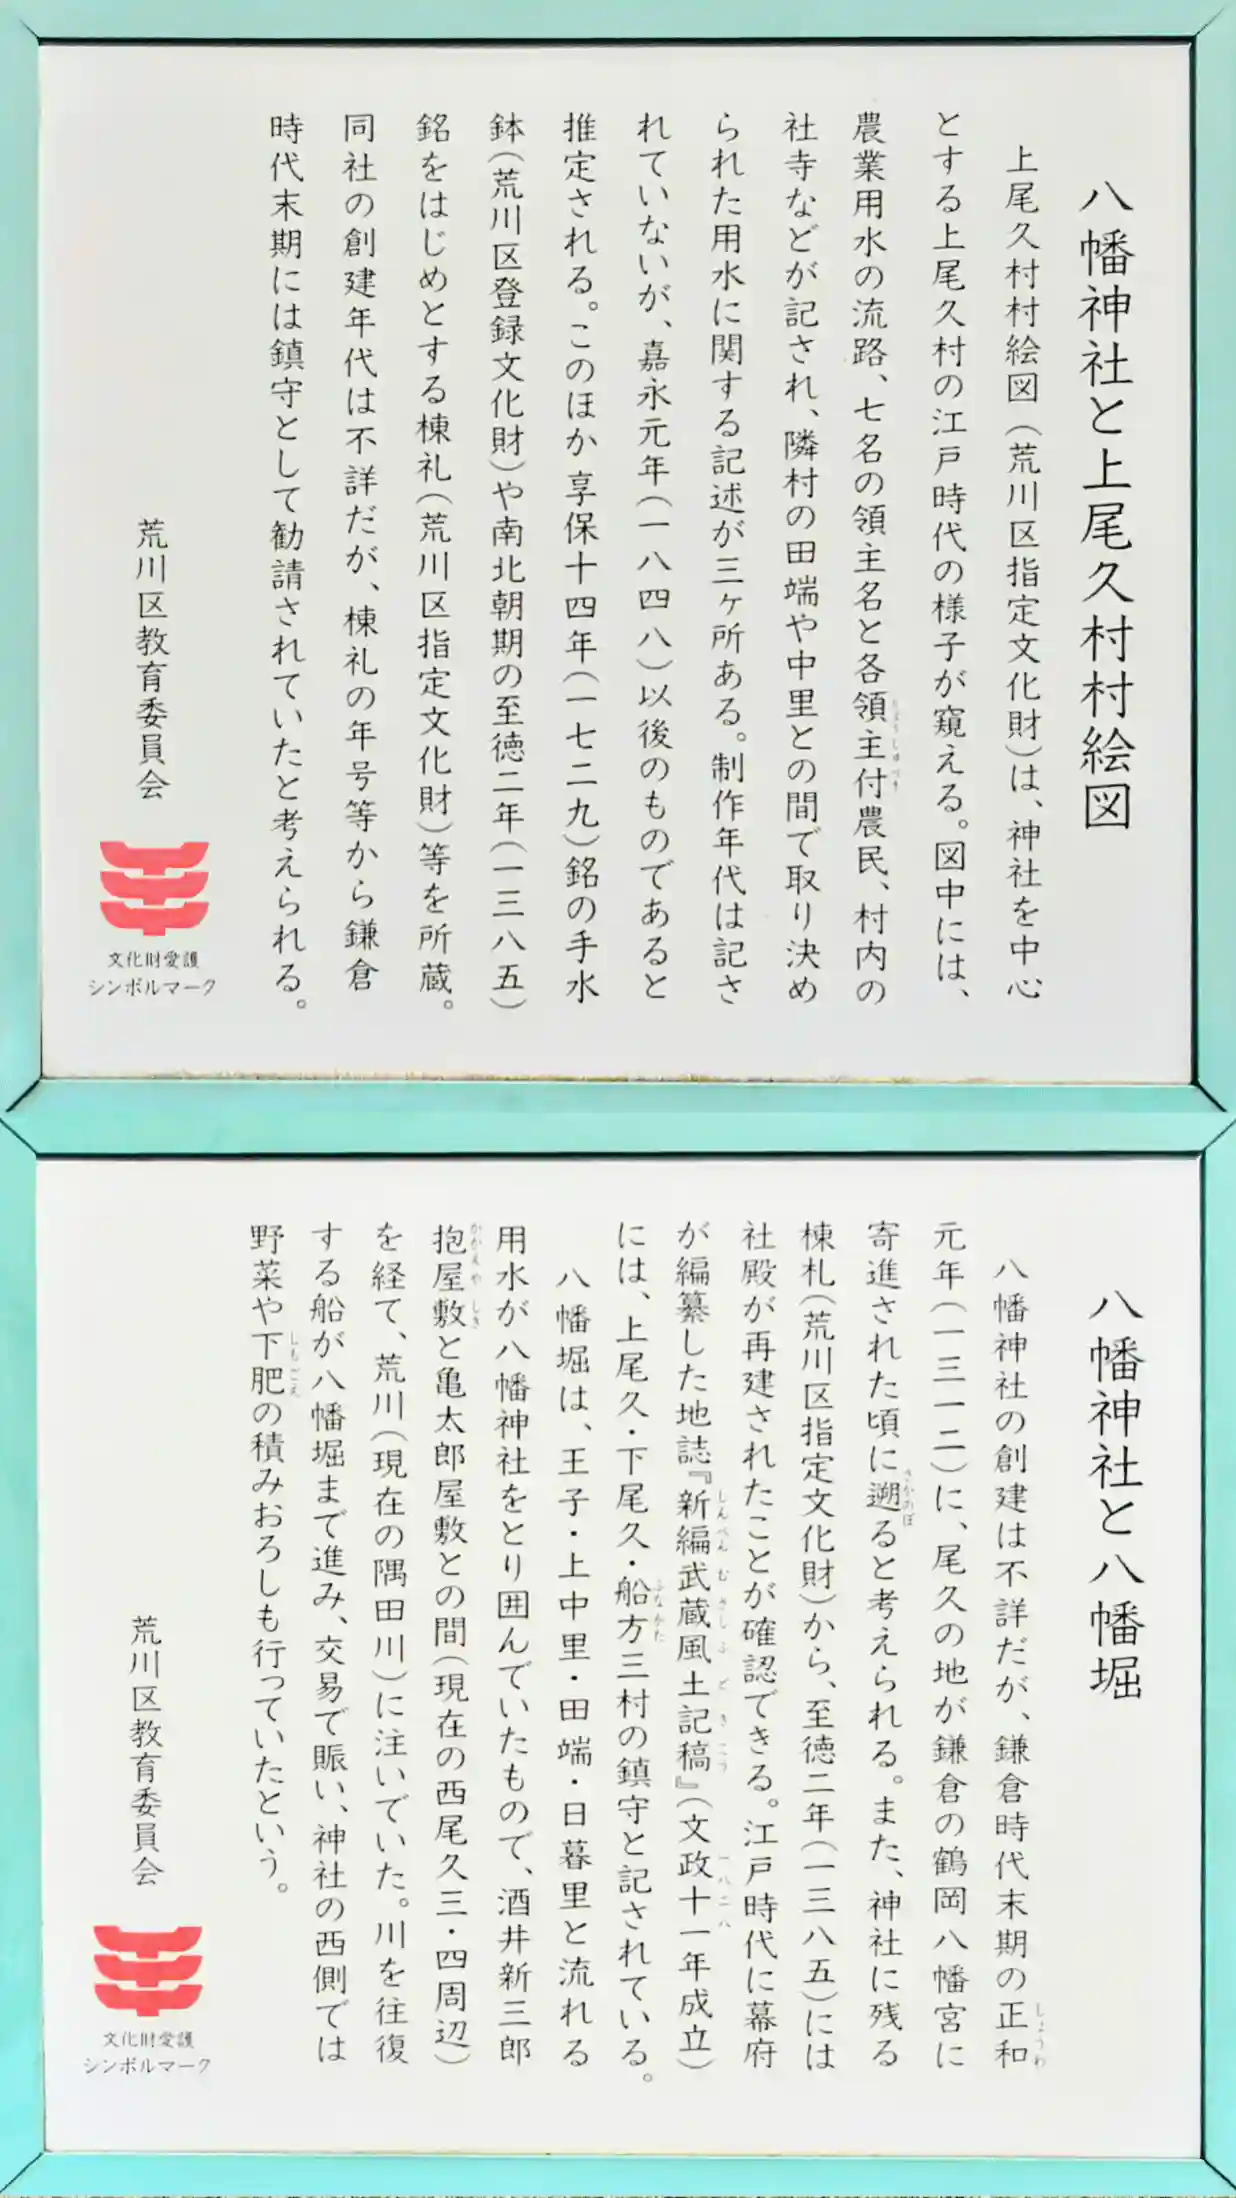 八幡神社と上尾久村村絵図
上尾久村村絵図(荒川区指定文化財)は、神社を中心
とする上尾久村の江戸時代の様子が窺える。図中には、
農業用水の流路、七名の領主名と各領主付農民、村内の
りょうしゅづき
社寺などが記され、隣村の田端や中里との間で取り決め
られた用水に関する記述が三ヶ所ある。制作年代は記さ
れていないが、嘉永元年(一八四八)以後のものであると
推定される。このほか享保十四年(一七二九)銘の手水
鉢(荒川区登録文化財)や南北朝期の至徳二年(一三八五)
銘をはじめとする棟礼(荒川区指定文化財)等を所蔵。
同社の創建年代は不詳だが、棟礼の年号等から鎌倉
時代末期には鎮守として勧請されていたと考えられる。
荒川区教育委員会
文化財愛護
シンボルマーク
八幡神社と八幡堀
八幡神社の創建は不詳だが、鎌倉時代末期の正和
しょうわ
元年(一三一二)に、尾久の地が鎌倉の鶴岡八幡宮に
寄進された頃に遡ると考えられる。また、神社に残る
さかのぼ
棟札(荒川区指定文化財)から、至徳二年(一三八五)には
社殿が再建されたことが確認できる。江戸時代に幕府
が編纂した地誌『新編武蔵風土記稿』(文政十一年成立)
しんぺんむさしふどきこう
一八二八
には、上尾久・下尾久・船方三村の鎮守と記されている。
ふなかた
八幡堀は、王子・上中里・田端・日暮里と流れる
用水が八幡神社をとり囲んでいたもので、酒井新三郎
抱屋敷と亀太郎屋敷との間(現在の西尾久三・四周辺)
かかえやしき
を経て、荒川(現在の隅田川)に注いでいた。川を往復
する船が八幡堀まで進み、交易で賑い、神社の西側では
野菜や下肥の積みおろしも行っていたという。
しもごえ
荒川区教育委員会
文化財愛護
シンボルマーク